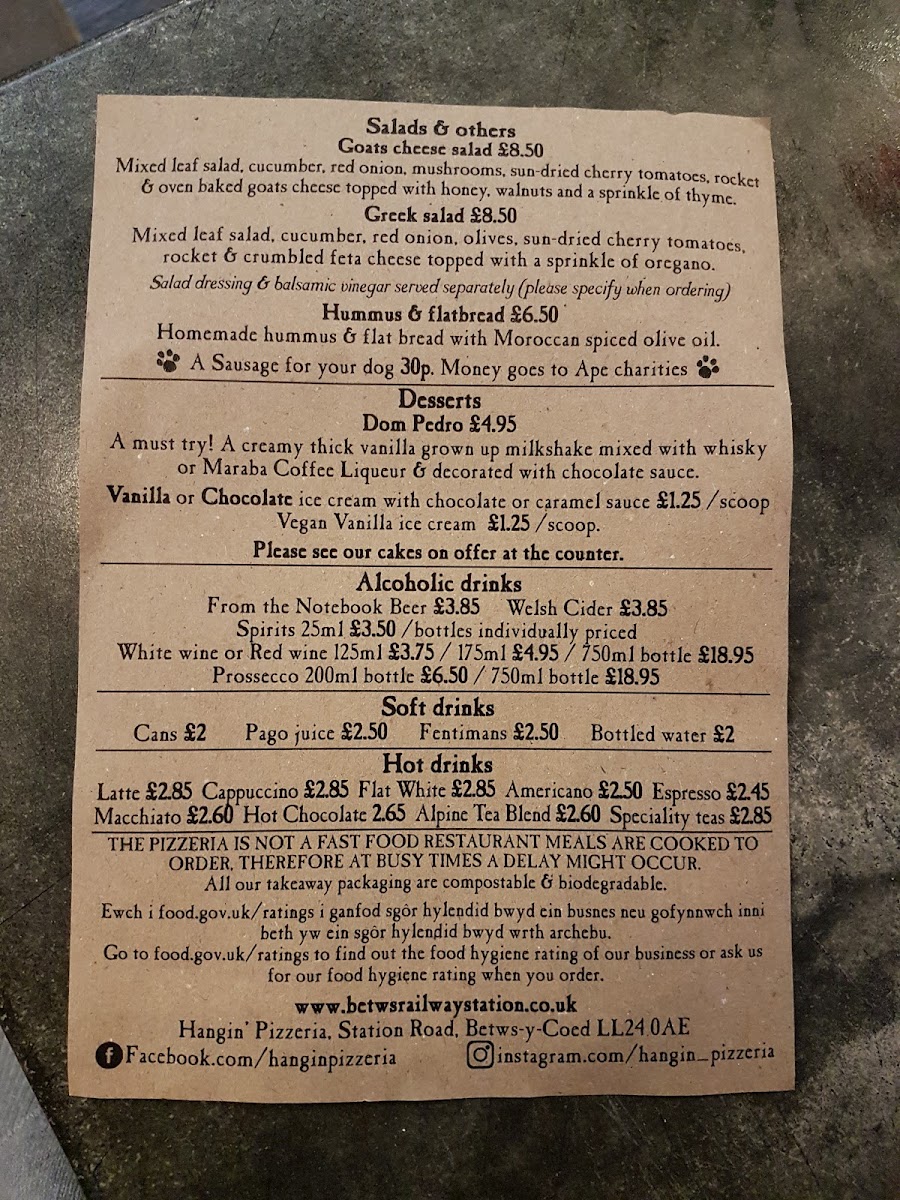 Salads & others
Goats cheese salad £8.50
Mixed leaf salad, cucumber, red onion, mushrooms, sun-dried cherry tomatoes, rocket
& oven baked goats cheese topped with honey, walnuts and a sprinkle of thyme.
Greek salad £8.50
Mixed leaf salad, cucumber, red onion, olives, sun-dried cherry tomatoes,
rocket & crumbled feta cheese topped with a sprinkle of oregano.
Salad dressing & balsamic vinegar served separately (please specify when ordering)
Hummus & flatbread £6.50
Homemade hummus & flat bread with Moroccan spiced olive oil.
A Sausage for your dog 30p. Money goes to Ape charities
Desserts
Dom Pedro £4.95
A must try! A creamy thick vanilla grown up milkshake mixed with whisky
or Maraba Coffee Liqueur & decorated with chocolate sauce.
Vanilla or Chocolate ice cream with chocolate or caramel sauce £1.25 /scoop
Vegan Vanilla ice cream £1.25 /scoop.
Please see our cakes on offer at the counter.
Alcoholic drinks
From the Notebook Beer £3.85 Welsh Cider £3.85
Spirits 25ml £3.50 /bottles individually priced
White wine or Red wine 125ml £3.75 / 175ml £4.95 / 750ml bottle £18.95
Prossecco 200ml bottle £6.50 / 750ml bottle £18.95
Soft drinks
Cans £2 Pago juice £2.50 Fentimans £2.50 Bottled water £2
Hot drinks
Latte £2.85 Cappuccino £2.85 Flat White £2.85 Americano £2.50 Espresso £2.45
Macchiato £2.60 Hot Chocolate 2.65 Alpine Tea Blend £2.60 Speciality teas £2.85
THE PIZZERIA IS NOT A FAST FOOD RESTAURANT MEALS ARE COOKED TO
ORDER, THEREFORE AT BUSY TIMES A DELAY MIGHT OCCUR.
All our takeaway packaging are compostable & biodegradable.
Ewch i food.gov.uk/ratings i ganfod sgôr hylendid bwyd ein busnes neu gofynnwch inni
beth yw ein sgôr hylendid bwyd wrth archebu.
Go to food.gov.uk/ratings to find out the food hygiene rating of our business or ask us
for our food hygiene rating when you order.
www.betwsrailwaystation.co.uk
Hangin' Pizzeria, Station Road, Betws-y-Coed LL24 0AE
Facebook.com/hanginpizzeria instagram.com/hangin_pizzeria